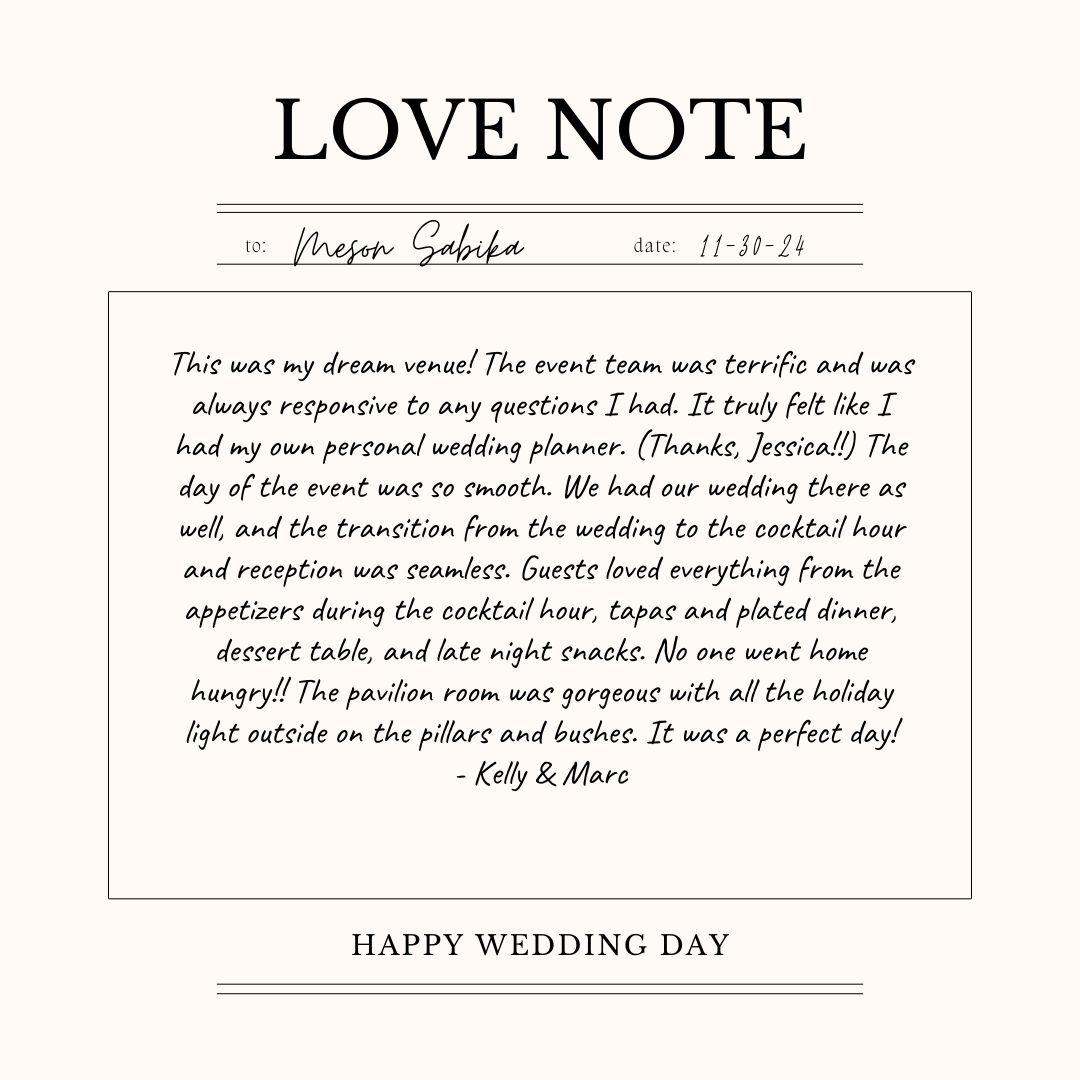 LOVE NOTE
to: Meson Sabika date: 11-30-24
This was my dream venue! The event team was terrific and was
always responsive to any questions I had. It truly felt like I
had my own personal wedding planner. (Thanks, Jessica!!) The
day of the event was so smooth. We had our wedding there as
well, and the transition from the wedding to the cocktail hour
and reception was seamless. Guests loved everything from the
appetizers during the cocktail hour, tapas and plated dinner,
dessert table, and late night snacks. No one went home
hungry!! The pavilion room was gorgeous with all the holiday
light outside on the pillars and bushes. It was a perfect day!
- Kelly & Marc
HAPPY WEDDING DAY